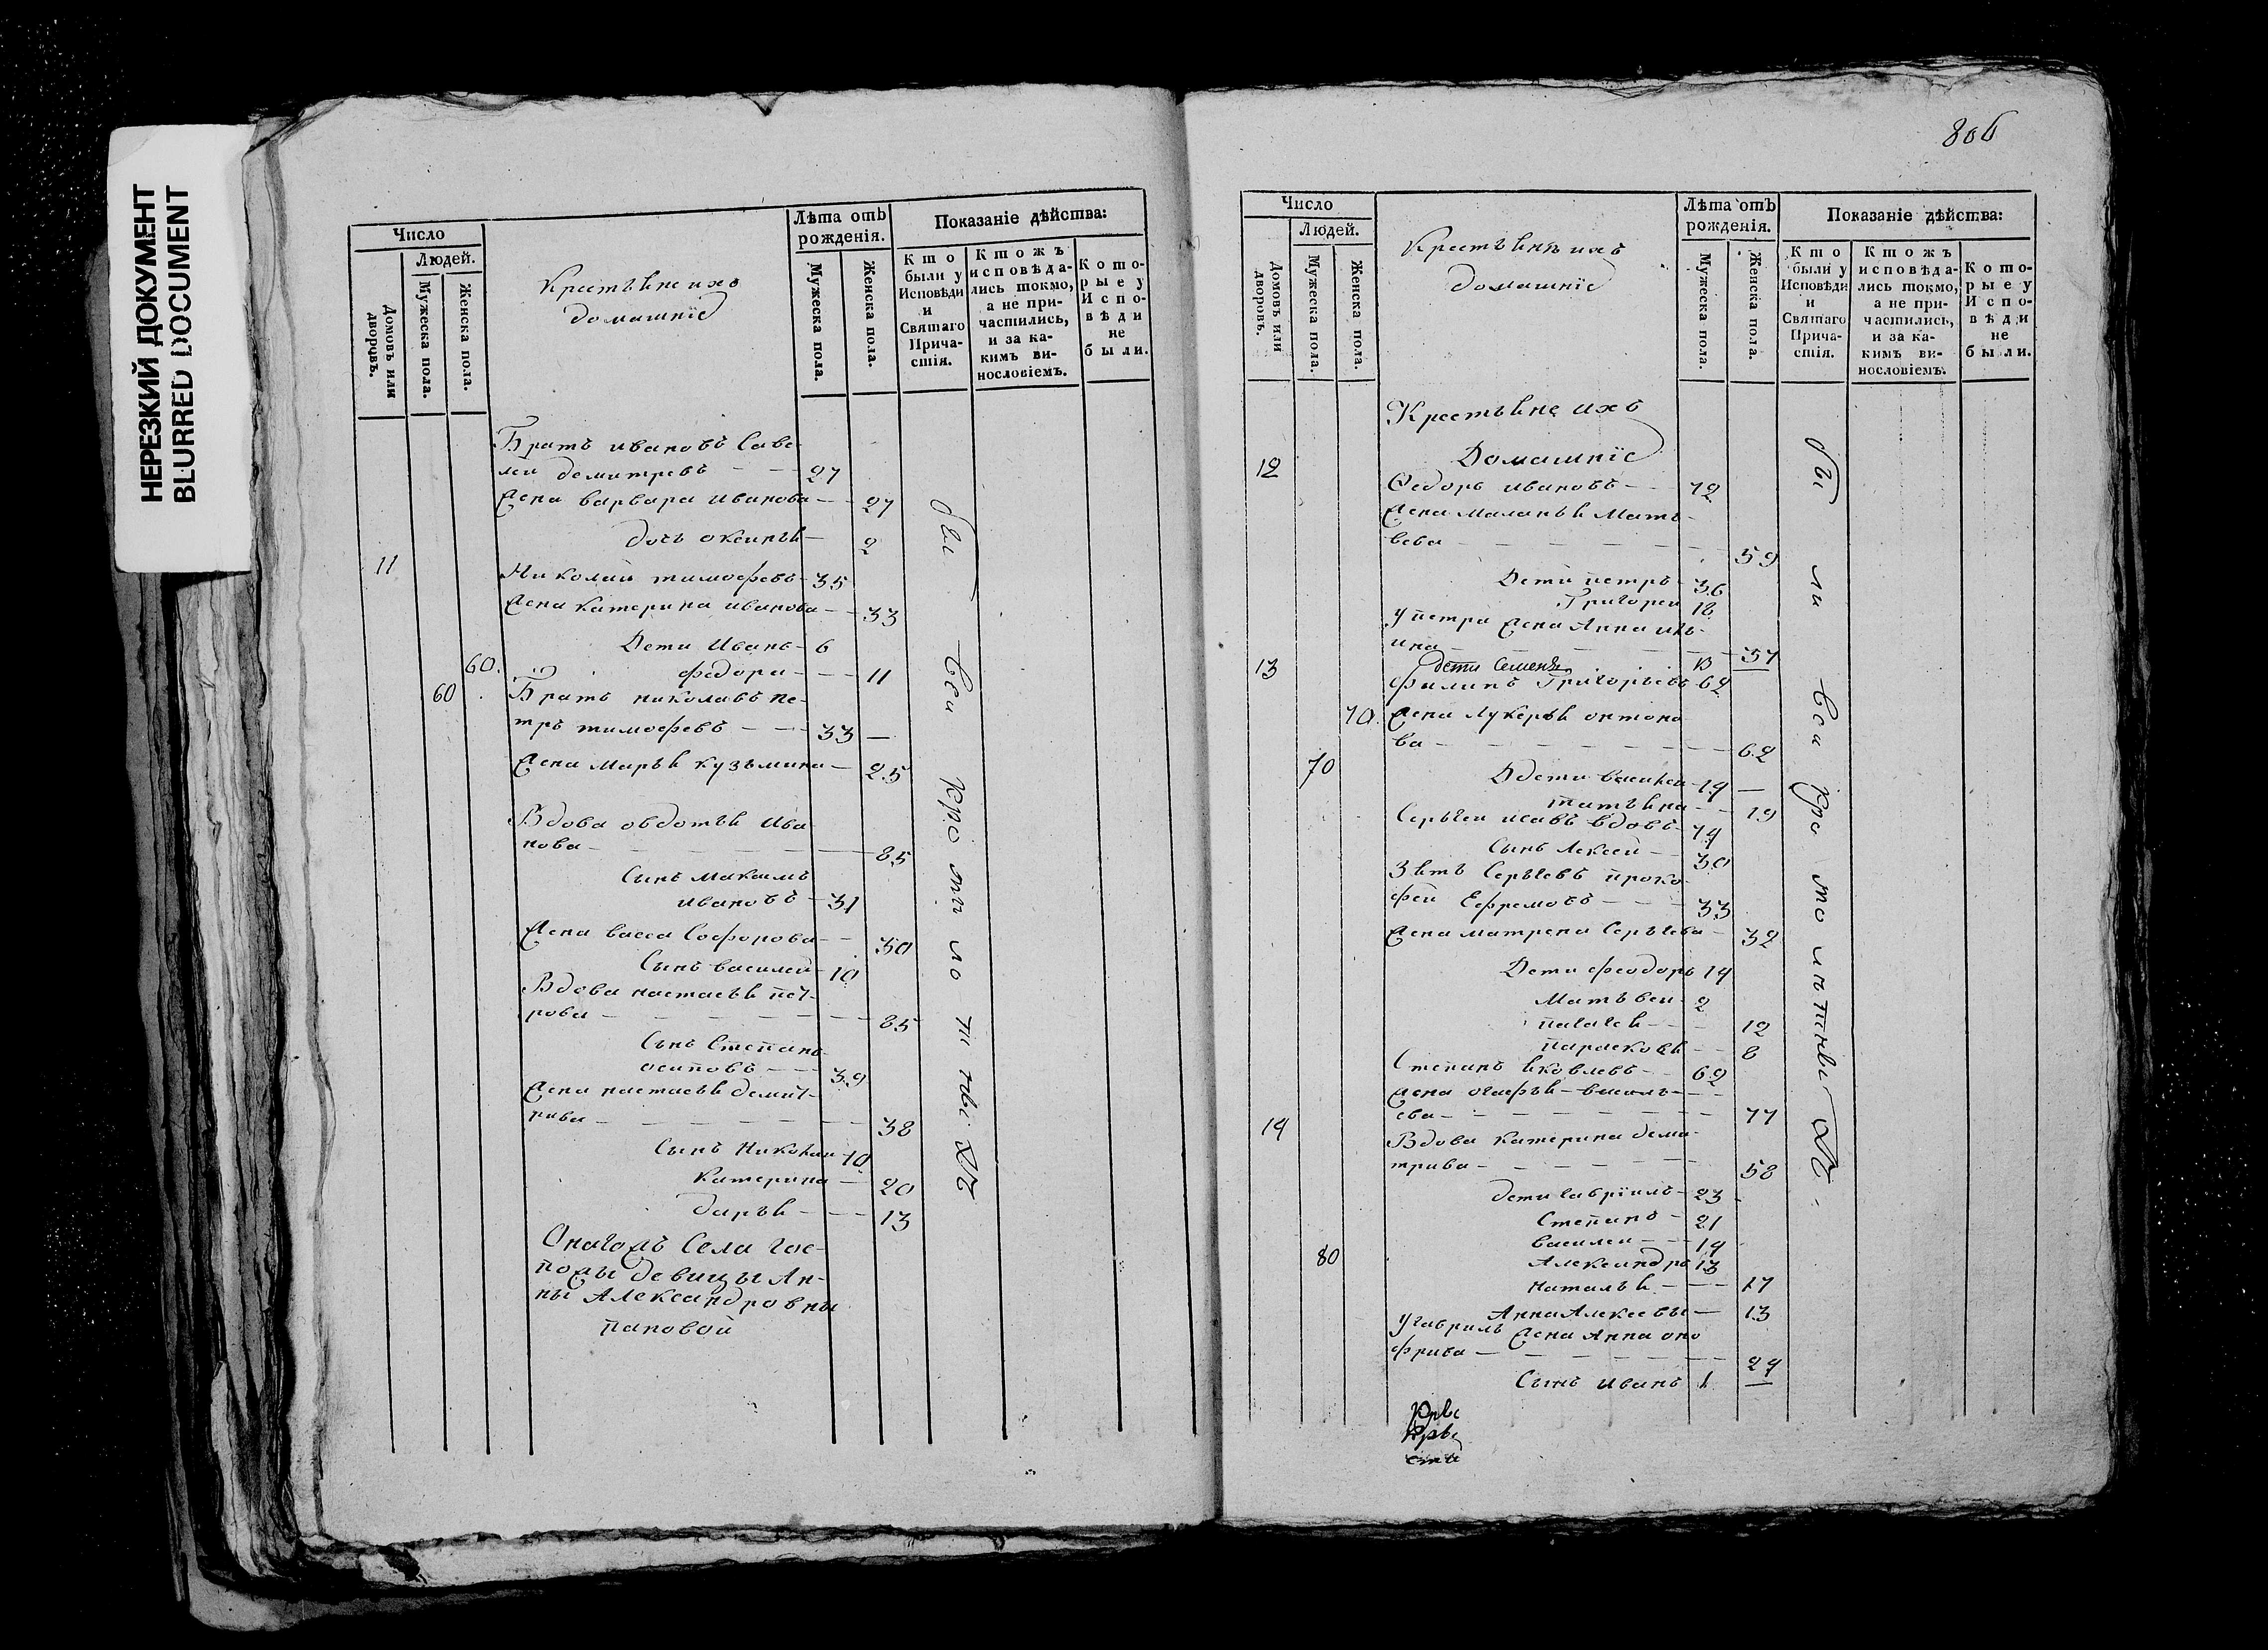 НЕРЕЗКИЙ ДОКУМЕНТ
BLURRED DOCUMENT
Число
Людей.
Домовъ или дворовъ.
Мужеска пола.
Женска пола.
Крестьяне ихъ
домашніе
Лѣта отъ рожденія.
Мужеска пола.
Женска пола.
Показаніе дѣйства:
Кто были у Исповѣди и Святаго Причастія.
Ктожъ исповѣдались токмо, а не причастились, и за какимъ винословіемъ.
Которые у Исповѣди не были.
Братъ ивановъ Саве-
леи демитревъ - - 27
Жена варвара иванова - - 27
дочь оксинья - 2
11 Николай тимофевъ - 35
Жена катерина иванова - - 33
Дети Иванъ - 6
60. федора - - - 11
60 Братъ николавъ пе-
тръ тимофевъ - - - 33 -
Жена марья кузьмина - 25
Вдова овдотья Ива
нова - - - - - 85
Сынъ максимъ
ивановъ - 31
Жена васса - - 30
Сынъ василей - 10
Вдова настасья пет-
рова - - - - - 85
Сынъ Степанъ
осиповъ - - - 39
Жена настасья демит-
рива - - - - - 38
Сынъ Николаи - 10
катерина - 20
дарья - - - 13
Онагожъ Села гос-
пожы девицы Ан-
ны Александровны
пановой
бы всі
806
Число
Людей.
Домовъ или дворовъ.
Мужеска пола.
Женска пола.
Крестьянъ ихъ
домашніе
Лѣта отъ рожденія.
Мужеска пола.
Женска пола.
Показаніе дѣйства:
Кто были у Исповѣди и Святаго Причастія.
Ктожъ исповѣдались токмо, а не причастились, и за какимъ винословіемъ.
Которые у Исповѣди не были.
Крестьяне ихъ
Домашніе
12 Федоръ ивановъ - 72
Жена маланья Мать-
вева - - - - - 59
Дети петръ - 36
Григореи 18
у петра жена Анна иль-
ина - - - - 37
дети Семенъ
13 филипъ Григорьевъ 62
70. Жена лукерья онтоно
ва - - - - - 62
70 Дети василеи - 19 -
татьяна - - 19
Серьгеи исавъ вдовъ - 74
Сынъ Алексеи - - 30
Зять Серьгевъ проко-
феи Ефремовъ - - - 33
Жена матрена Серьгева - 32
Дети феодоръ 14
Матьвеи - 2
палагея - - - 12
парасковья - - 8
Степанъ яковлевъ - - 62
Жена огафья - василь-
ева - - - - - 77
14 Вдова катерина деми-
трива - - - - - 58
дети гавріилъ - 23 -
Степанъ - 21
василеи - - 19
80 Александръ 13
наталья - - - 17
Анна Алексевы - 13
у гавриль жена Анна оно
фрива - - - - - 24
Сынъ иванъ 1
бы ли всі